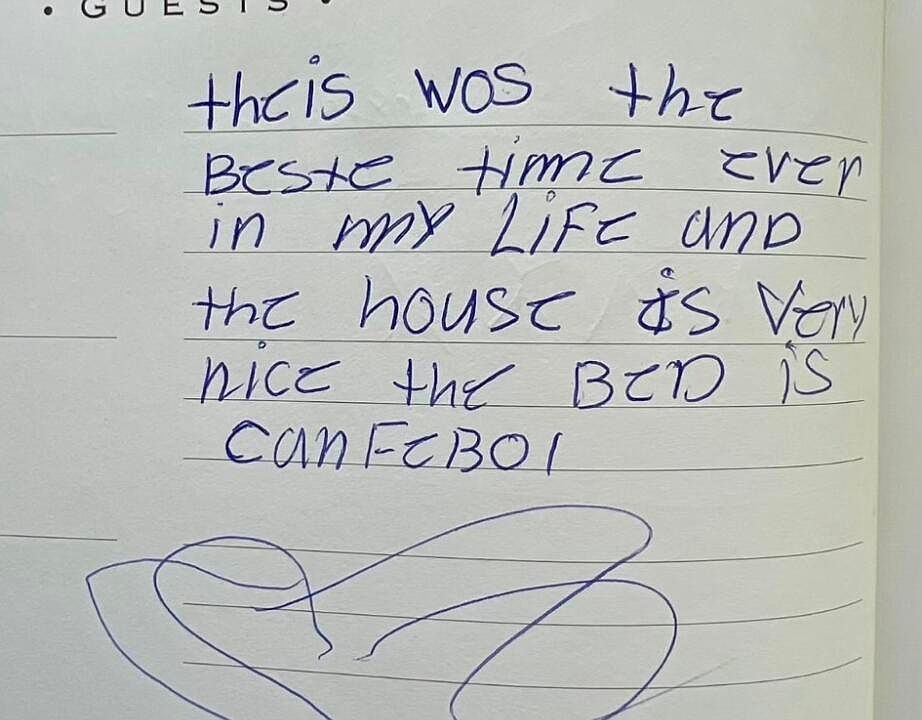 • GUESTS •
theis wos the
Beste time ever
in my LiFe anD
the house is very
nice the BeD is
canFeBOl